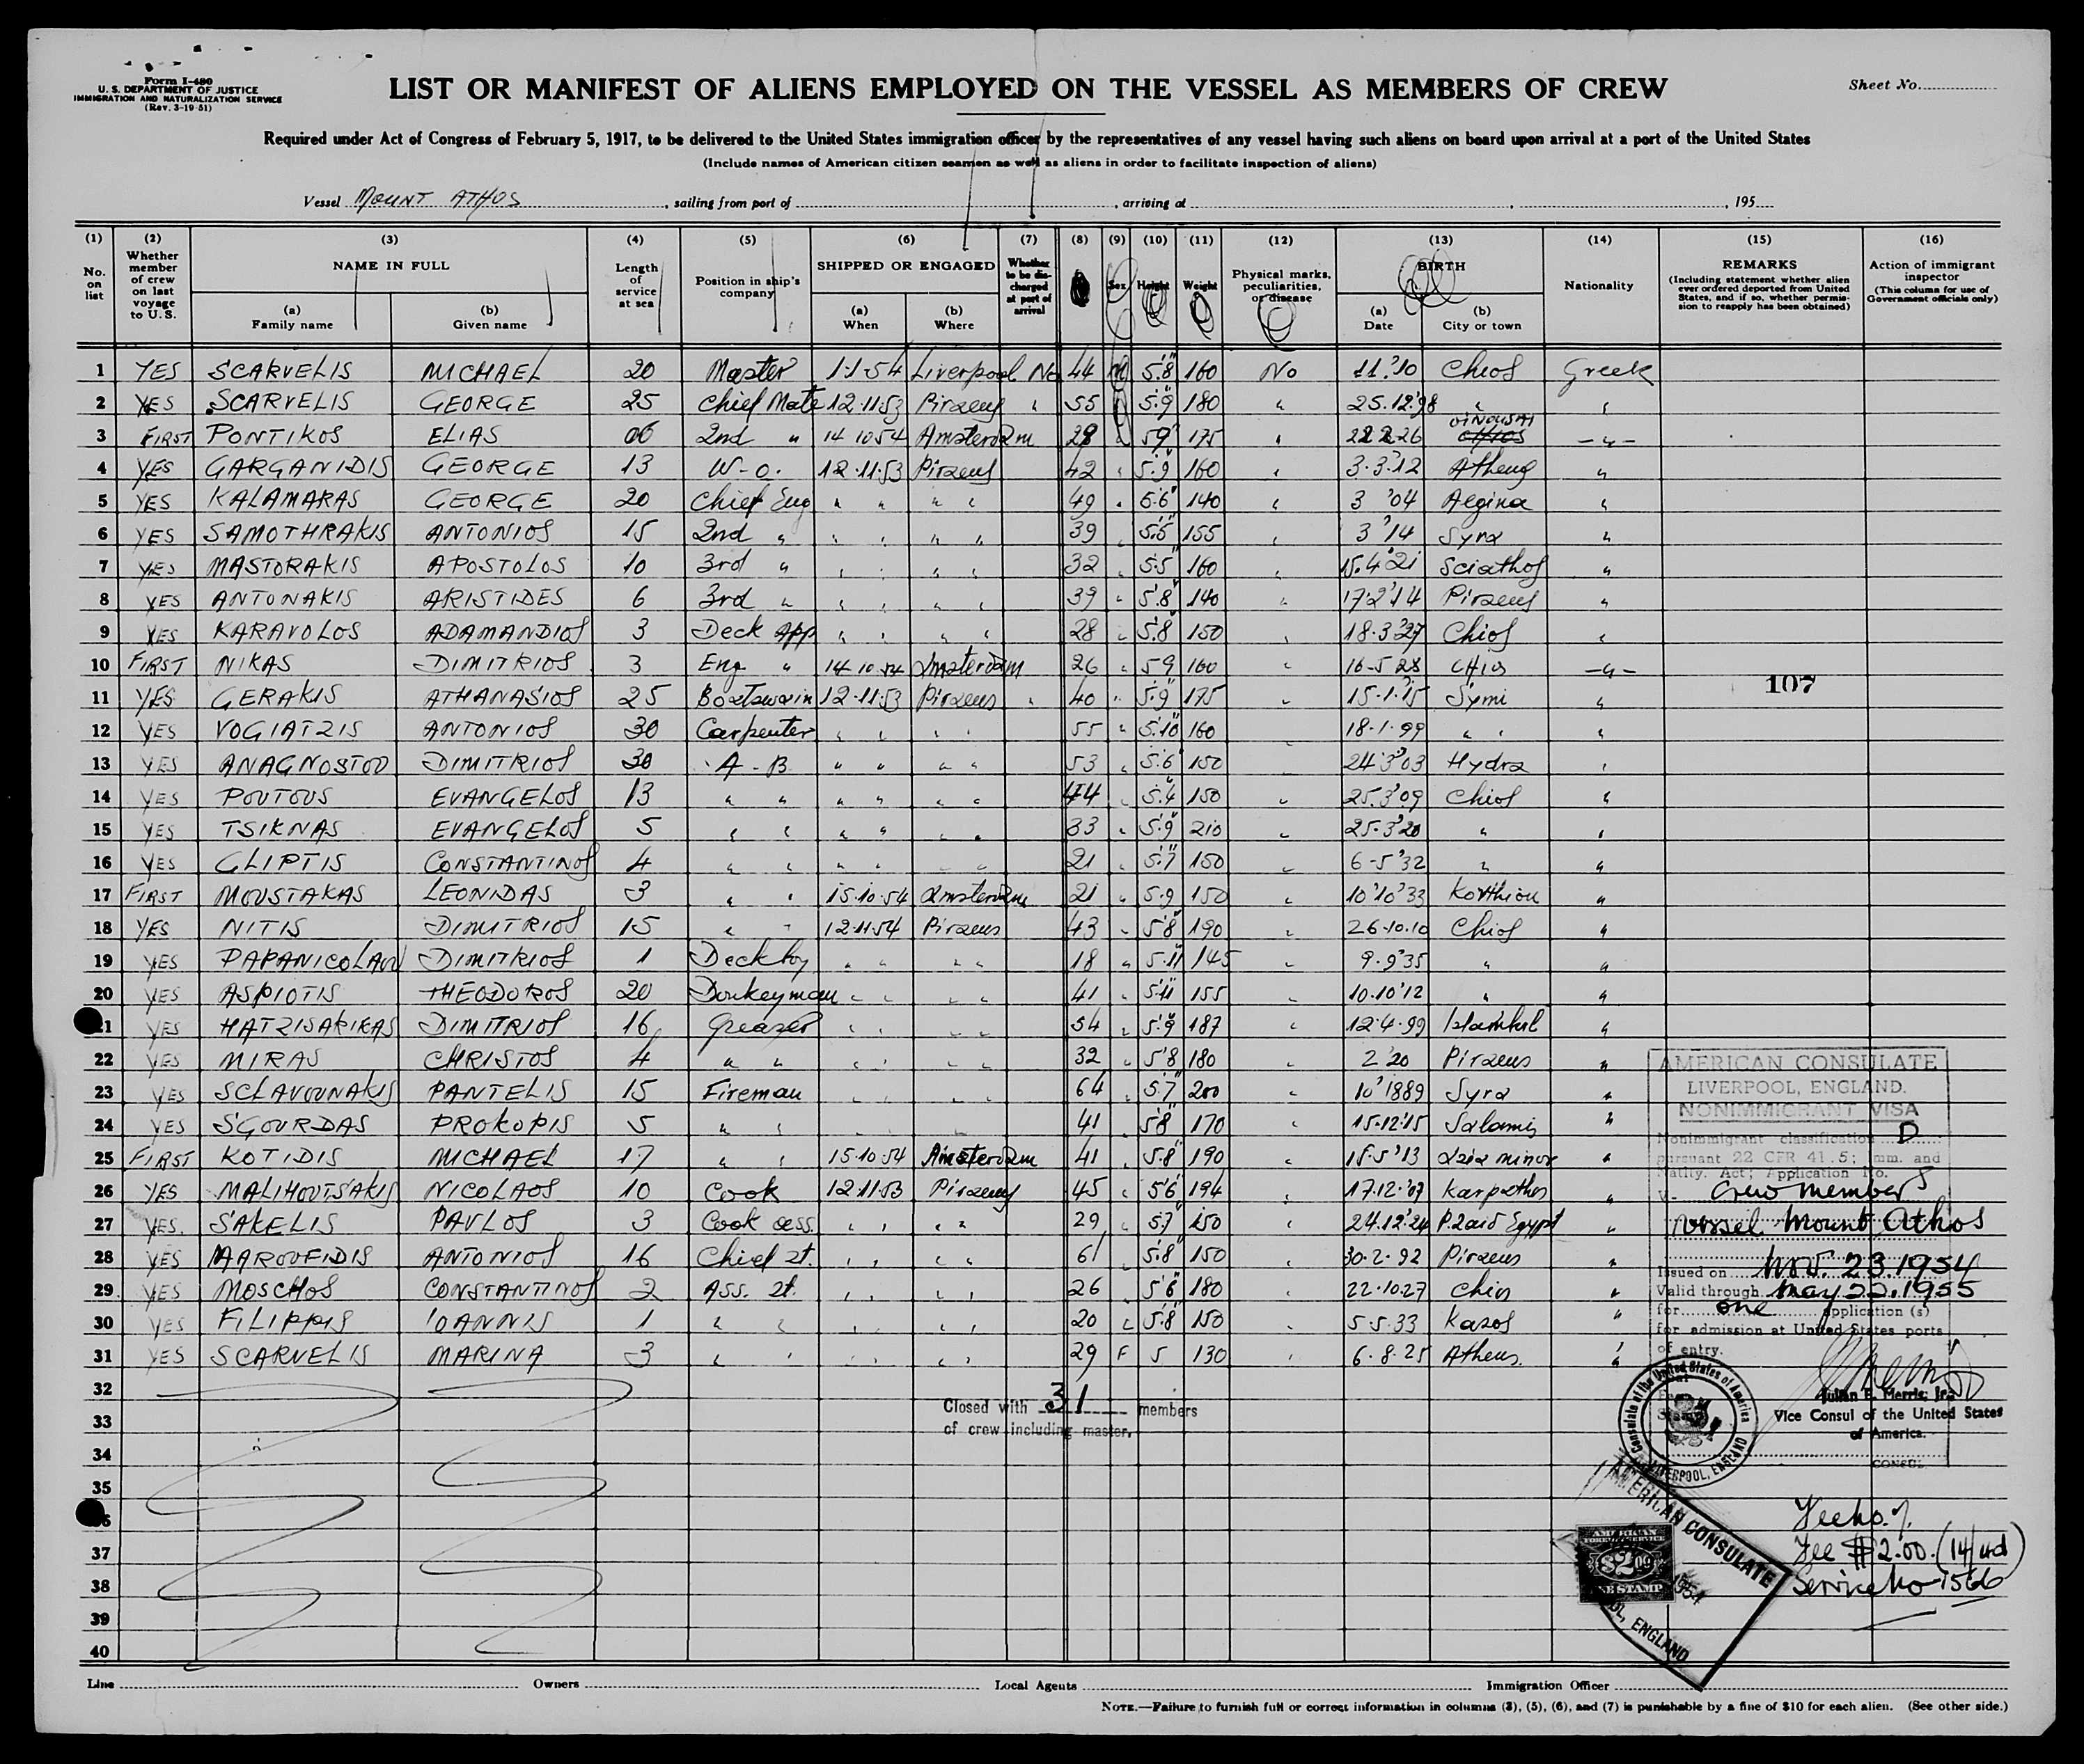 Form I-480
U. S. DEPARTMENT OF JUSTICE
IMMIGRATION AND NATURALIZATION SERVICE
(Rev. 3-19-51)
LIST OR MANIFEST OF ALIENS EMPLOYED ON THE VESSEL AS MEMBERS OF CREW
Sheet No.
Required under Act of Congress of February 5, 1917, to be delivered to the United States immigration officer by the representatives of any vessel having such aliens on board upon arrival at a port of the United States
(Include names of American citizen seamen as well as aliens in order to facilitate inspection of aliens)
Vessel MOUNT ATHOS , sailing from port of , arriving at , , 195
(1) (2) (3) (4) (5) (6) (7) (8) (9) (10) (11) (12) (13) (14) (15) (16)
No. on list
Whether member of crew on last voyage to U. S.
NAME IN FULL
(a) Family name
(b) Given name
Length of service at sea
Position in ship's company
SHIPPED OR ENGAGED
(a) When
(b) Where
Whether to be discharged at port of arrival
Sex
Height
Weight
Physical marks, peculiarities, or disease
BIRTH
(a) Date
(b) City or town
Nationality
REMARKS
(Including statement whether alien ever ordered deported from United States, and if so, whether permission to reapply has been obtained)
Action of immigrant inspector
(This column for use of Government officials only)
1 YES SCARVELIS MICHAEL 20 Master 1.1.54 Liverpool No 44 M 5.8" 160 No 11.'10 Chios Greek
2 YES SCARVELIS GEORGE 25 Chief Mate 12.11.53 Piraeus " 55 " 5.9 180 " 25.12.98 " "
3 FIRST PONTIKOS ELIAS 06 2nd " 14 10 54 Amsterdam 28 " 5 9 175 " 22 2 26 OINOUSAI -"-
4 YES GARGANIDIS GEORGE 13 W-O. 12.11.53 Piraeus 42 " 5.9 160 " 3.3.'12 Athens "
5 YES KALAMARAS GEORGE 20 Chief Eng " " " " 49 " 5.6" 140 " 3 '04 Aegina "
6 YES SAMOTHRAKIS ANTONIOS 15 2nd " " " " " 39 " 5.5" 155 " 3 '14 Syra "
7 YES MASTORAKIS APOSTOLOS 10 3rd " " " " " 32 " 5.5" 160 15.4'21 Sciathos "
8 YES ANTONAKIS ARISTIDES 6 3rd " " " " " 39 " 5.8" 140 " 17.2'14 Piraeus "
9 YES KARAVOLOS ADAMANDIOS 3 Deck App " " " " 28 " 5.8" 150 " 18.3'27 Chios "
10 FIRST NIKAS DIMITRIOS 3 Eng " 14 10 54 Amsterdam 26 " 5 9 160 " 16-5 28 CHIOS -"-
11 YES GERAKIS ATHANASIOS 25 Boatswain 12.11.53 Piraeus " 40 " 5.9" 175 " 15.1.'15 Symi "
12 YES VOGIATZIS ANTONIOS 30 Carpenter " " " " 55 " 5.10" 160 " 18.1.99 " " "
13 YES ANAGNOSTOU DIMITRIOS 30 A-B " " " " 53 " 5.6" 150 " 24.3'03 Hydra "
14 YES POUTOUS EVANGELOS 13 " " " " " " 44 " 5.4" 150 " 25.3'09 Chios "
15 YES TSIKNAS EVANGELOS 5 " " " " " " 33 " 5.9" 210 " 25.3'20 " "
16 YES GLIPTIS CONSTANTINOS 4 " " " " " " 21 " 5.7" 150 " 6-5'32 " "
17 FIRST MOUSTAKAS LEONIDAS 3 " " 15.10.54 Amsterdam 21 " 5.9 150 " 10'10'33 Korthion "
18 YES NITIS DIMITRIOS 15 " " 12.11.54 Piraeus 43 " 5.8" 190 " 26.10.10 Chios "
19 YES PAPANICOLAOU DIMITRIOS 1 Deckboy " " " " 18 " 5.11 145 " 9.9'35 " "
20 YES ASPIOTIS THEODOROS 20 Donkeyman " " " " 41 " 5.11" 155 " 10.10'12 " "
21 YES HATZISARIKAS DIMITRIOS 16 Greaser " " " " 54 " 5.9" 187 " 12.4.99 Istambul "
22 YES MIRAS CHRISTOS 4 " " " " " " 32 " 5'8 180 " 2'20 Piraeus "
23 YES SCLAVOUNAKIS PANTELIS 15 Fireman " " " " 64 " 5.7" 200 " 10'1889 Syra "
24 YES SGOURDAS PROKOPIS 5 " " " " " " 41 5'8" 170 " 15.12.15 Salamis "
25 FIRST KOTIDIS MICHAEL 17 " " 15.10.54 Amsterdam 41 " 5.8" 190 " 15.5'13 Asia minor "
26 YES MALIHOUTSAKIS NICOLAOS 10 Cook 12.11.53 Piraeus 45 " 5'6" 194 " 17.12.'07 Karpathos "
27 YES. SAKELIS PAVLOS 3 Cook ass. " " " " 29 " 5.7" 150 " 24.12.'24 P. Said Egypt "
28 YES MAROUFIDIS ANTONIOS 16 Chief st. " " " " 61 5.8" 150 " 30.2.92 Piraeus "
29 YES MOSCHOS CONSTANTINOS 2 Ass. st. " " " " 26 " 5'6" 180 " 22.10.27 Chios "
30 YES FILIPPIS IOANNIS 1 " " " " " " 20 " 5.8" 150 " 5.5.33 Kasos "
31 YES SCARVELIS MARINA 3 " " " " " " 29 F 5 130 " 6.8.25 Athens. "
32
33
34
35
37
38
39
40
107
Closed with 31 members
of crew including master.
AMERICAN CONSULATE
LIVERPOOL, ENGLAND.
NONIMMIGRANT VISA
Nonimmigrant classification D
pursuant 22 CFR 41.5; Imm. and
Natlty. Act; Application No.
V- Crew members
vessel Mount Athos
Issued on Nov. 23.1954
Valid through May 22.1955
for one application(s)
for admission at United States ports
of entry.
Julian E. Merris, Jr.
Vice Consul of the United States
of America.
CONSUL
Consulate of the United States of America
LIVERPOOL, ENGLAND
AMERICAN CONSULATE
1954
ENGLAND
AMERICAN
FOREIGN SERVICE
$2.00
FEE STAMP
Fee No. 9
Fee $2.00. (14/4d)
Service No 1566
Line Owners Local Agents Immigration Officer
NOTE.—Failure to furnish full or correct information in columns (3), (5), (6), and (7) is punishable by a fine of $10 for each alien. (See other side.)